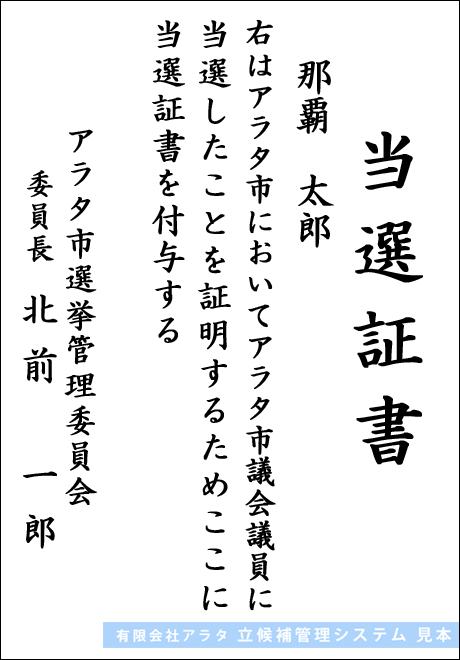 当選証書
那覇　太郎
右はアラタ市においてアラタ市議会議員に
当選したことを証明するためここに
当選証書を付与する
アラタ市選挙管理委員会
委員長　北前　一郎
有限会社アラタ 立候補管理システム 見本